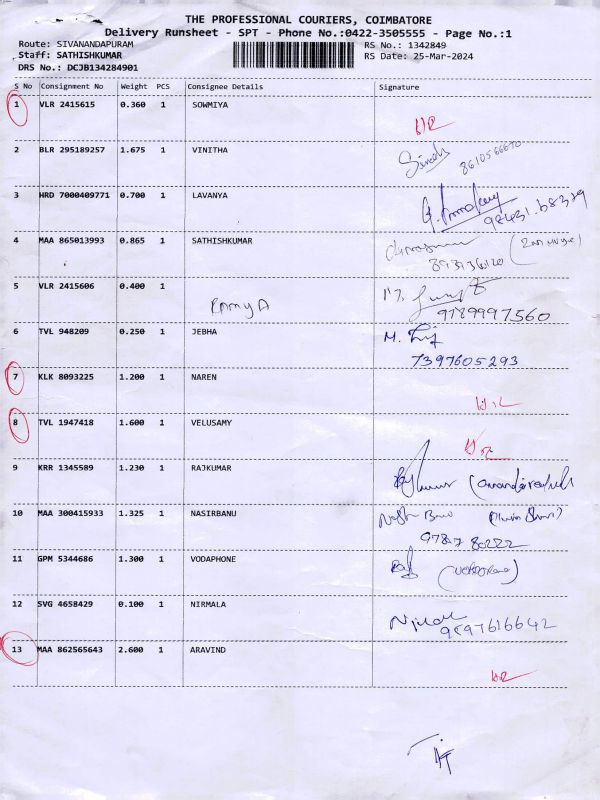 THE PROFESSIONAL COURIERS, COIMBATORE
Delivery Runsheet - SPT - Phone No.:0422-3505555 - Page No.:1
Route: SIVANANDAPURAM RS No.: 1342849
Staff: SATHISHKUMAR RS Date: 25-Mar-2024
DRS No.: DCJB134284901
S No Consignment No Weight PCS Consignee Details Signature
1 VLR 2415615 0.360 1 SOWMIYA
2 BLR 295189257 1.675 1 VINITHA
3 HRD 7000409771 0.700 1 LAVANYA
4 MAA 865013993 0.865 1 SATHISHKUMAR
5 VLR 2415606 0.400 1
RAMYA
9789997560
6 TVL 948209 0.250 1 JEBHA M.
7397605293
7 KLK 8093225 1.200 1 NAREN
8 TVL 1947418 1.600 1 VELUSAMY
9 KRR 1345589 1.230 1 RAJKUMAR
10 MAA 300415933 1.325 1 NASIRBANU
11 GPM 5344686 1.300 1 VODAPHONE
(VODAPHONE)
12 SVG 4658429 0.100 1 NIRMALA
9597616642
13 MAA 862565643 2.600 1 ARAVIND